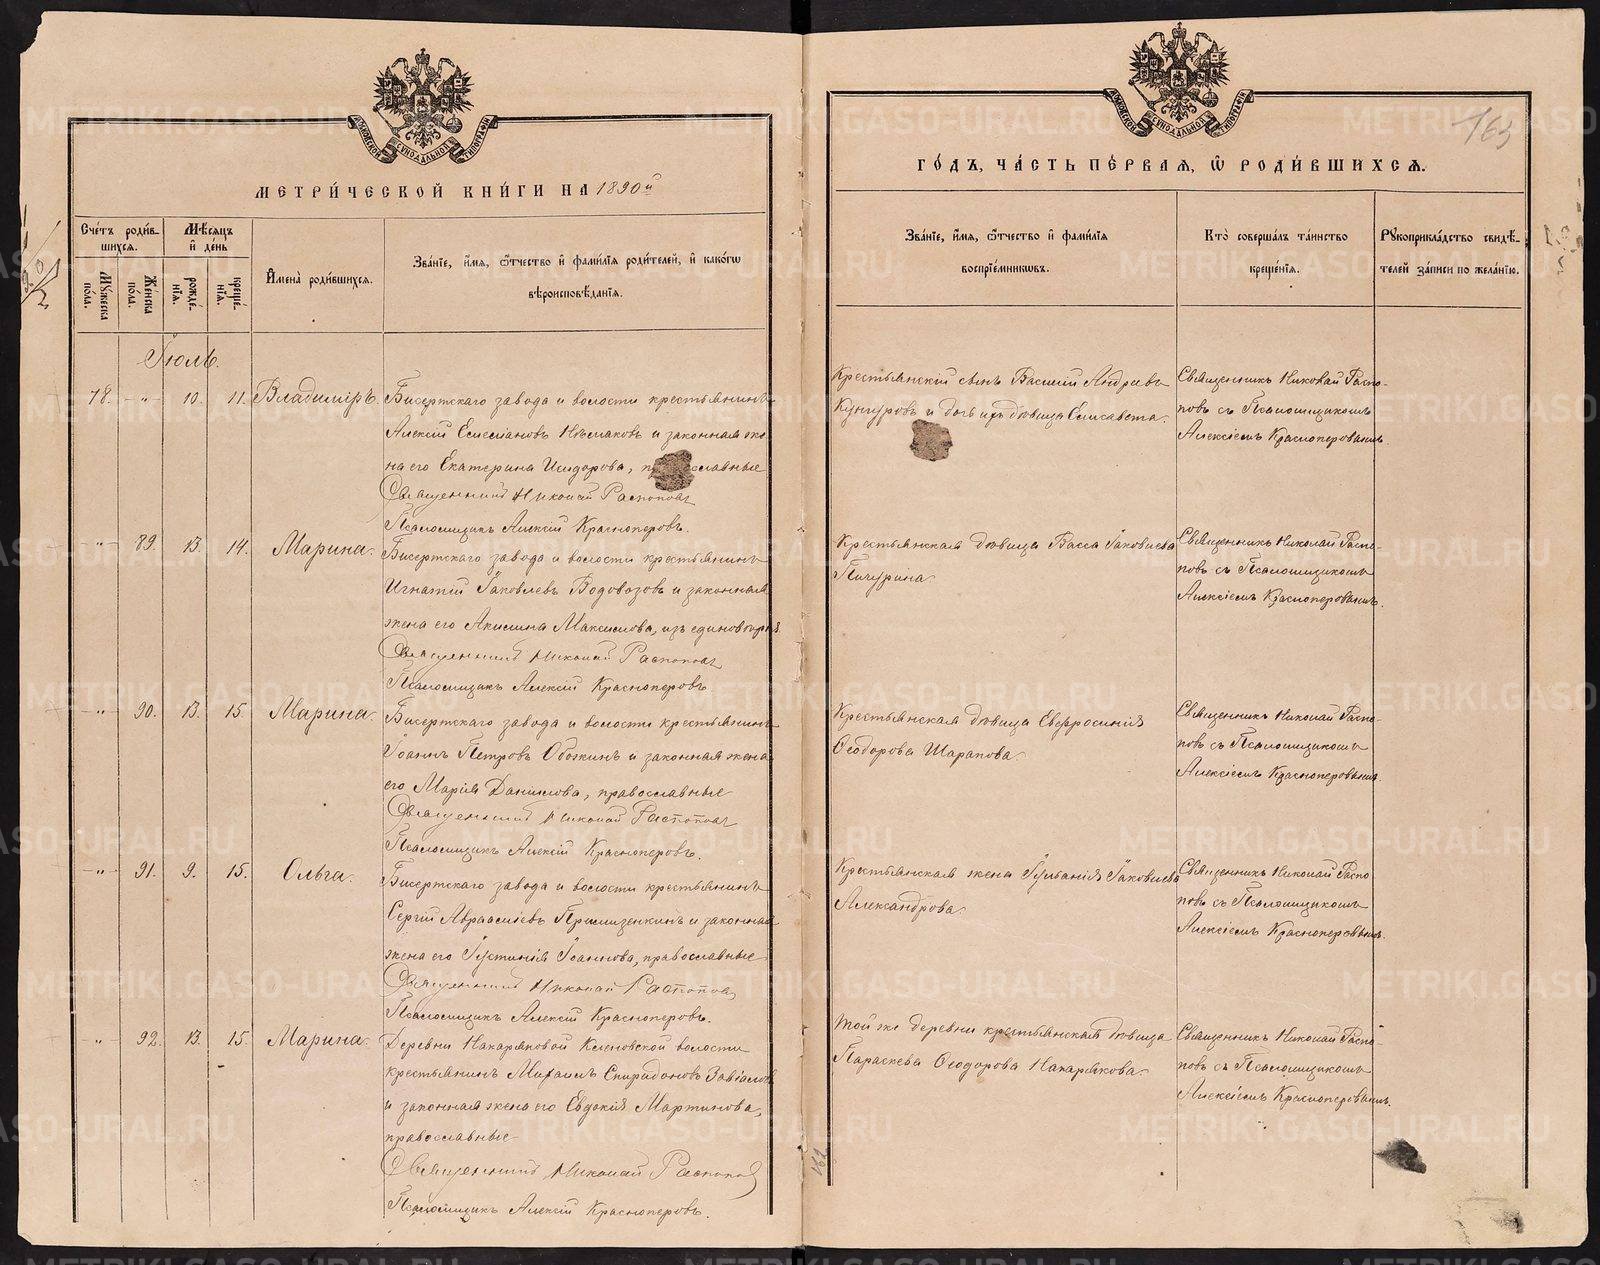 МОСКОВСКОЙ СѴНОДАЛЬНОЙ ТИПОГРАФІИ
МЕТРИ́ЧЕСКОЙ КНИ́ГИ НА 1890й
Сче́тъ роди́вшихся.
Мѣ́сяцъ и҆ де́нь
Мꙋ́жеска по́ла.
Же́нска по́ла.
рожде́нїя.
креще́нїя.
И҆мена̀ роди́вшихся.
Зва́нїе, и҆́мя, ѻ҆́тчество и҆ фами́лїя роди́телей, и҆ како́гѡ
вѣроисповѣ́данїя.
Іюль.
78. -"- 10. 11. Владиміръ. Бисертскаго завода и волости крестьянинъ
Алексій Емельяновъ и законная же-
на его Екатерина Исидорова, православные
Священникъ Николай Распоповъ
Псаломщикъ Алексій Красноперовъ.
-"- 89. 13. 14. Марина. Бисертскаго завода и волости крестьянинъ
Игнатій Іаковлевъ Водовозовъ и законная
жена его Акилина Максимова, изъ единовѣрія.
Священникъ Николай Распоповъ
Псаломщикъ Алексій Красноперовъ
-"- 90. 13. 15. Марина. Бисертскаго завода и волости крестьянинъ
Іоаннъ Петровъ Обожинъ и законная жена
его Марія Данилова, православные
Священникъ Николай Распоповъ
Псаломщикъ Алексій Красноперовъ.
-"- 91. 9. 15. Ольга. Бисертскаго завода и волости крестьянинъ
Сергій Авраамьевъ и законная
жена его Іустинія Іоаннова, православные
Священникъ Николай Распоповъ
Псаломщикъ Алексій Красноперовъ.
-"- 92. 13. 15. Марина. Деревни Накаряковой Кленовской волости
крестьянинъ Михаилъ Спиридоновъ Завьяловъ
и законная жена его Евдокія Мартинова,
православные
Священникъ Николай Распоповъ
Псаломщикъ Алексій Красноперовъ.
162
МОСКОВСКОЙ СѴНОДАЛЬНОЙ ТИПОГРАФІИ
163
ГО́ДЪ, ЧА́СТЬ ПЕ́РВАЯ, Ѡ҆ РОДИ́ВШИХСЯ.
Зва́нїе, и҆́мя, ѻ҆́тчество и҆ фами́лїя
воспрїе́мникѡвъ.
Кто̀ соверша́лъ та́инство
креще́нїя.
Рꙋкоприкла́дство свидѣ́-
телей за́писи по жела́нїю.
Крестьянскій сынъ Василій Андреевъ
Кунгуровъ и дочь ихъ дѣвица Елисавета.
Священникъ Николай Распо-
повъ съ Псаломщикомъ
Алексіемъ Красноперовымъ.
Крестьянская дѣвица Васса Іаковлева
Пичурина.
Священникъ Николай Распо-
повъ съ Псаломщикомъ
Алексіемъ Красноперовымъ.
Крестьянская дѣвица Евфросинія
Ѳеодорова Шарапова.
Священникъ Николай Распо-
повъ съ Псаломщикомъ
Алексіемъ Красноперовымъ.
Крестьянская жена Іуліанія Іаковлева
Александрова.
Священникъ Николай Распо
повъ съ Псаломщикомъ
Алексіемъ Красноперовымъ.
Той же деревни крестьянская дѣвица
Параскева Ѳеодорова Накарякова.
Священникъ Николай Распо-
повъ съ Псаломщикомъ
Алексіемъ Красноперовымъ.
METRIKI.GASO-URAL.RU